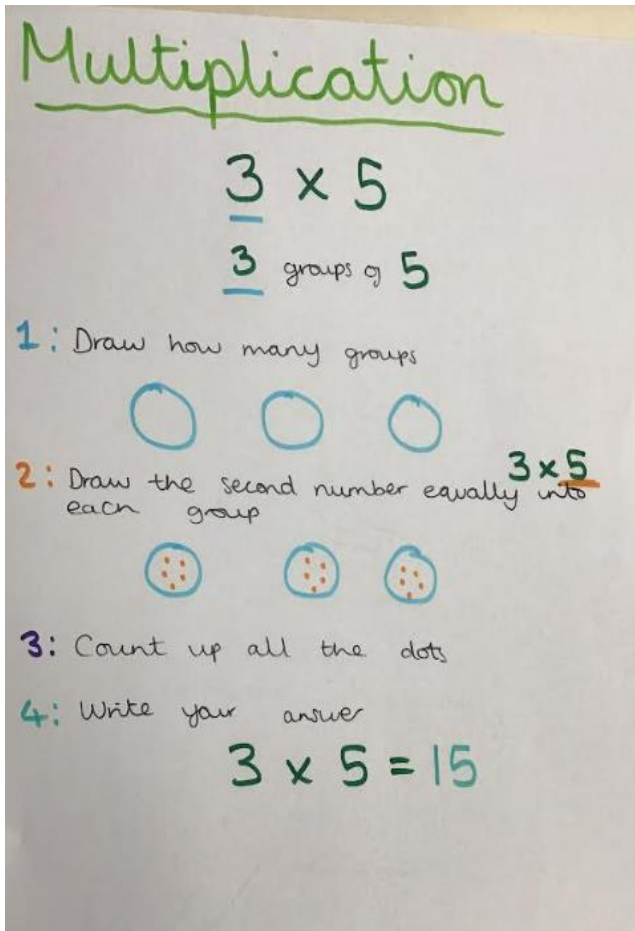 Multiplication
3 × 5
3 groups of 5
1: Draw how many groups
3 × 5
2: Draw the second number equally into
each group
3: Count up all the dots
4: Write your answer
3 × 5 = 15